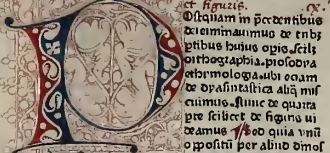 et figuris. cx.
Ostquam in p̄cedentibus
determinauimus de tribꝫ
ptibus huius opis. scilꝫ
orthographia. prosodya
ethymologia. ubi eciam
de dyasintastica aliq̄ mis
cuimus. Nunc de quarta
pte scilicet de figuris ui
deamus Sed quia vnū
oppositū per aliud dinos